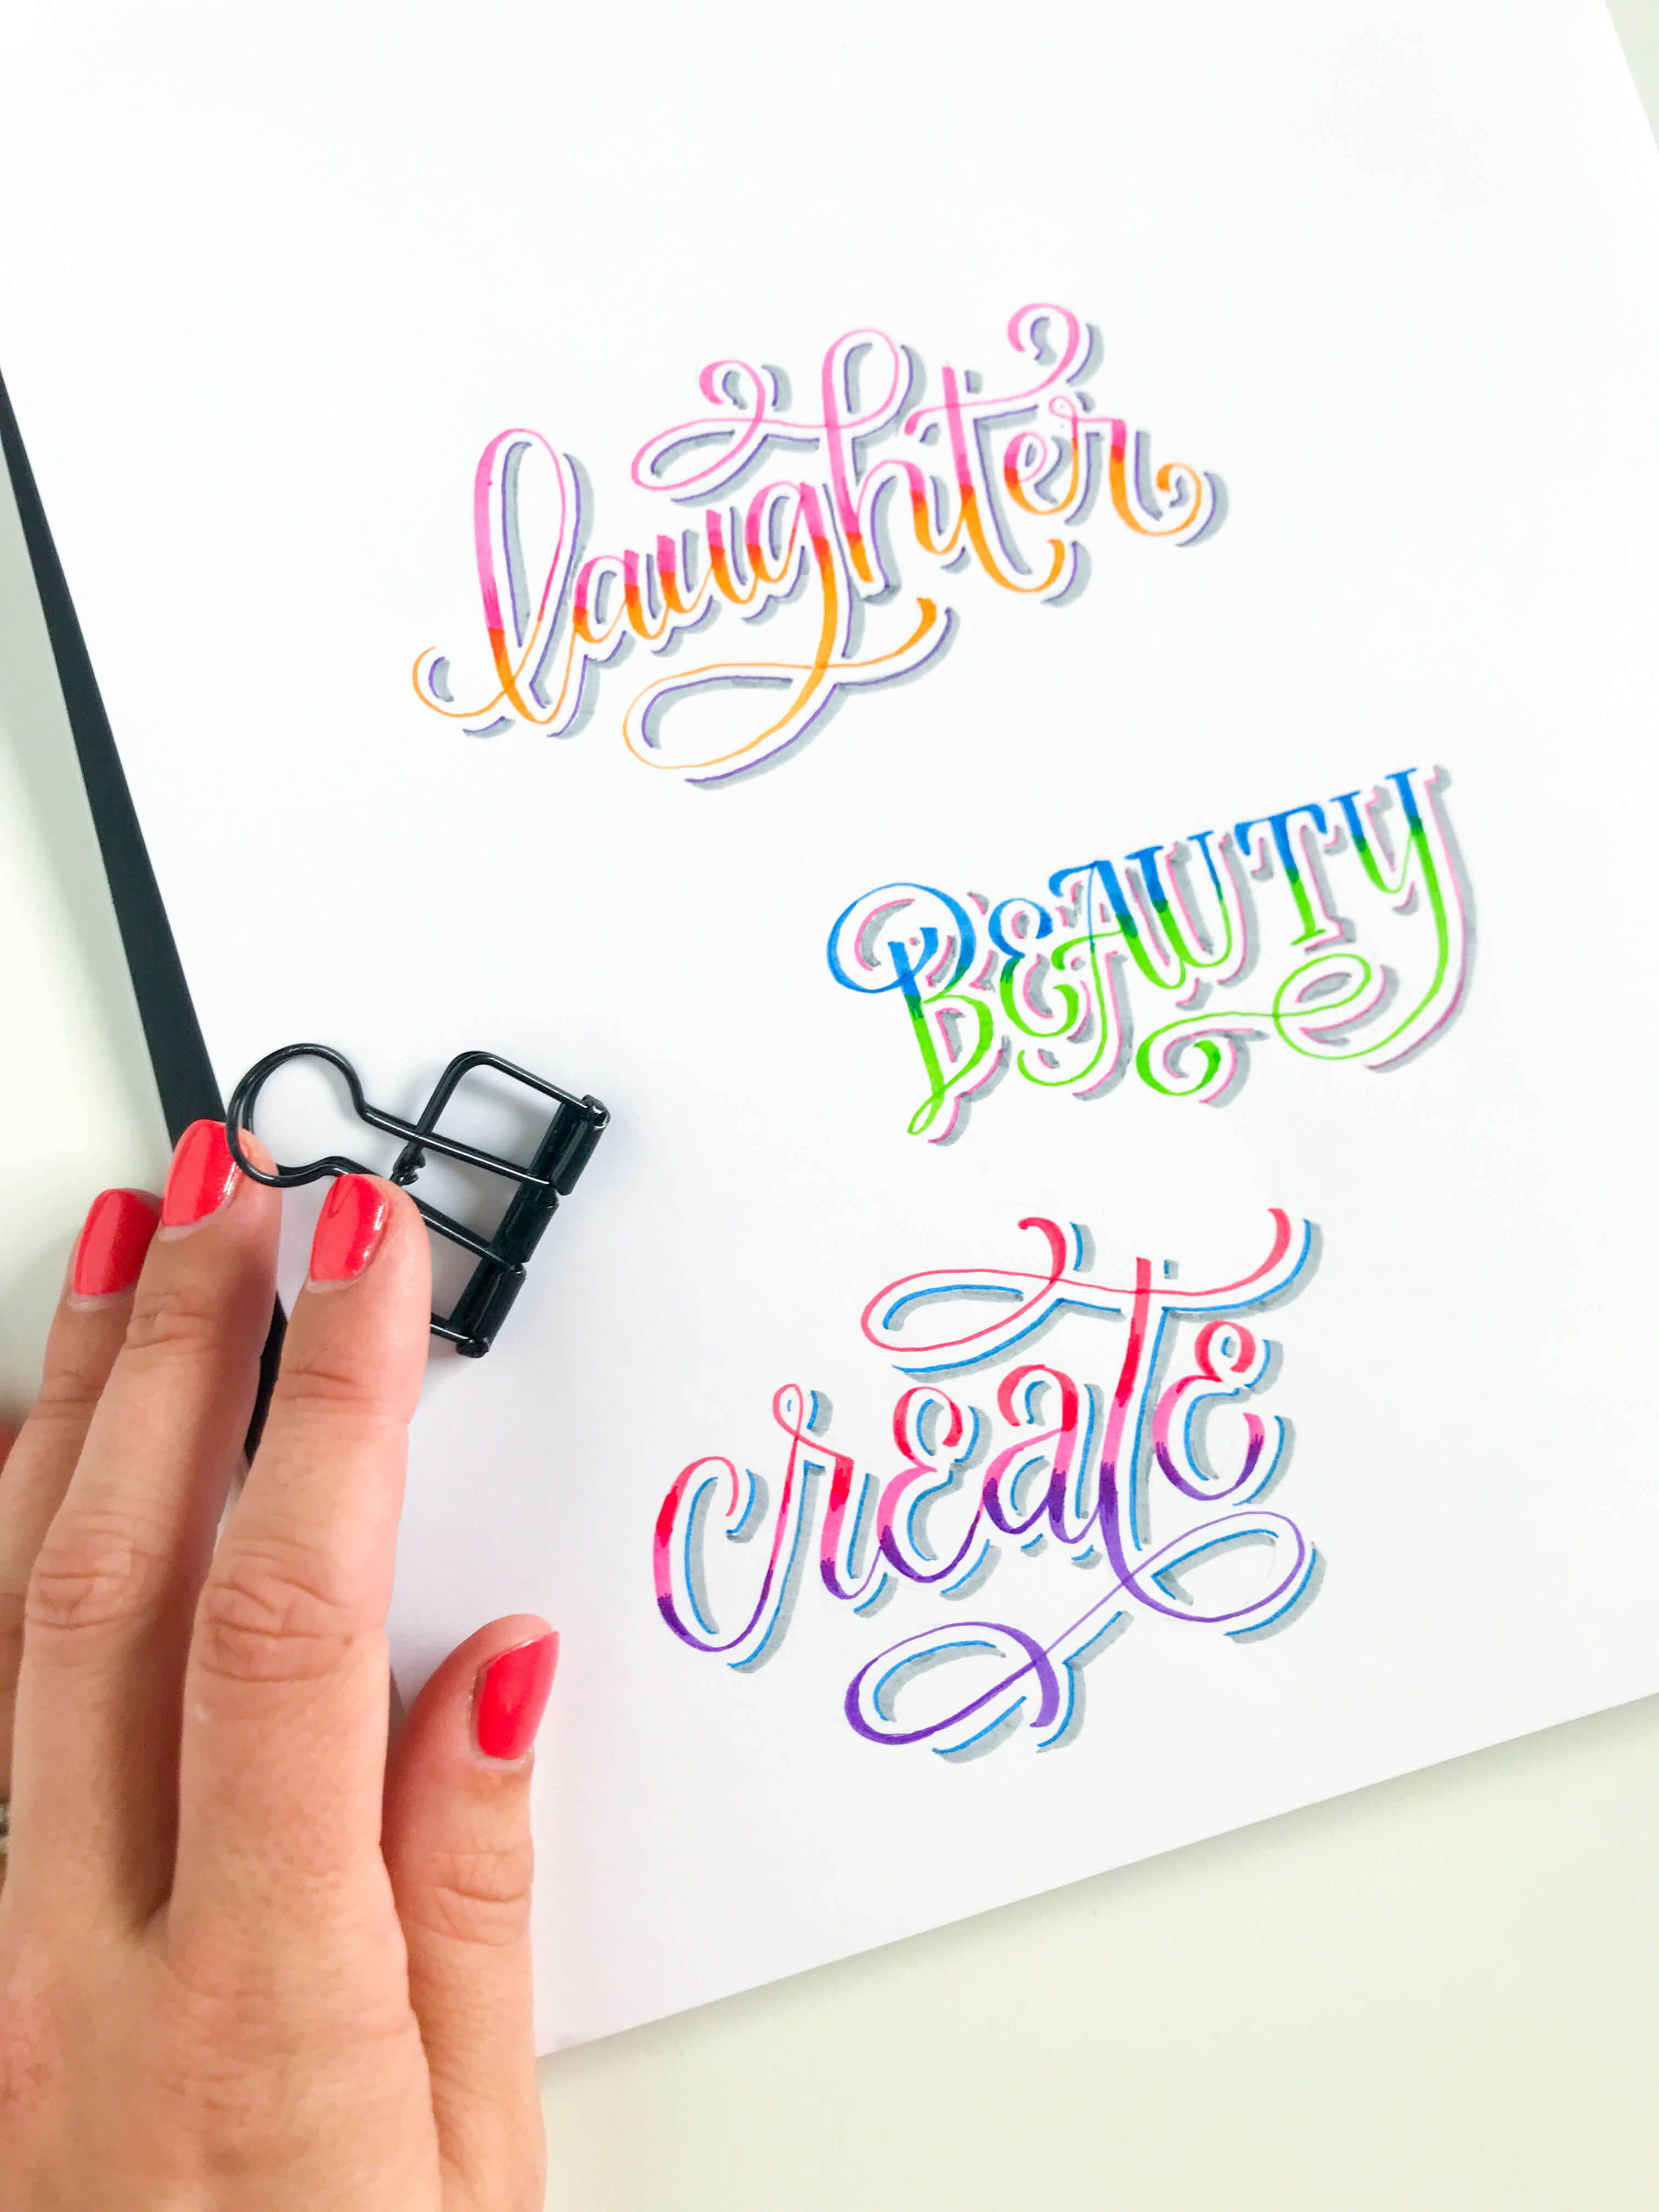 laughter
BEAUTY
create